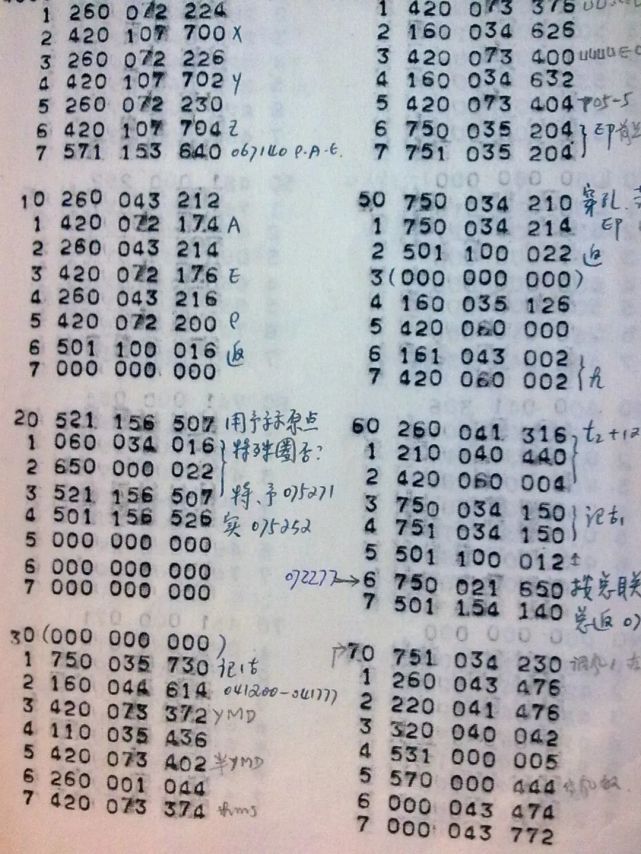 1 260 072 224
2 420 107 700 X
3 260 072 226
4 420 107 702 Y
5 260 072 230
6 420 107 704 Z
7 571 153 640 067140 P.A.E.
10 260 043 212
1 420 072 174 A
2 260 043 214
3 420 072 176 E
4 260 043 216
5 420 072 200 ρ
6 501 100 016 返
7 000 000 000
20 521 156 507 用予示原点
1 060 034 016 特殊圈否?
2 650 000 022
3 521 156 507 特、予 075271
4 501 156 526 实 075252
5 000 000 000
6 000 000 000
7 000 000 000
30 (000 000 000)
1 750 035 730 记忙
2 160 044 614 041200-041777
3 420 073 372 YMD
4 110 035 436
5 420 073 402 半YMD
6 260 001 044
7 420 073 374 hms
1 420 073 376
2 160 034 626
3 420 073 400
4 160 034 632
5 420 073 404 P05-5
6 750 035 204 印
7 751 035 204
50 750 034 210 穿孔.
1 750 034 214 印
2 501 100 022 返
3 (000 000 000)
4 160 035 126
5 420 060 000
6 161 043 002
7 420 060 002 h
60 260 041 316 t2+12
1 210 040 440
2 420 060 004
3 750 034 150 记忙
4 751 034 150
5 501 100 012
072277→6 750 021 650 按总联
7 501 154 140 总返 07
70 751 034 230
1 260 043 476
2 220 041 476
3 320 040 042
4 531 000 005
5 570 000 444
6 000 043 474
7 000 043 772